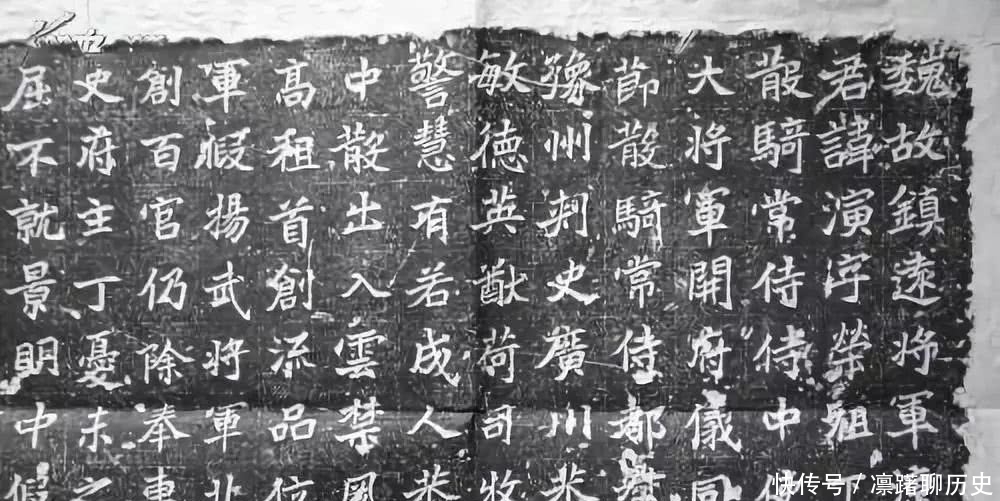 魏故鎮遠将軍
君諱演字榮祖
散騎常侍侍中
大将軍開府儀同
節散騎常侍都督
豫州刾史廣川
敏德英猷荷司牧
警慧有若成人
中散出入雲禁
高祖首創流品位
軍假揚武將軍北
創百官仍除奉車
史府主丁憂未之
屈不就景明中假
快传号/凛躇聊历史